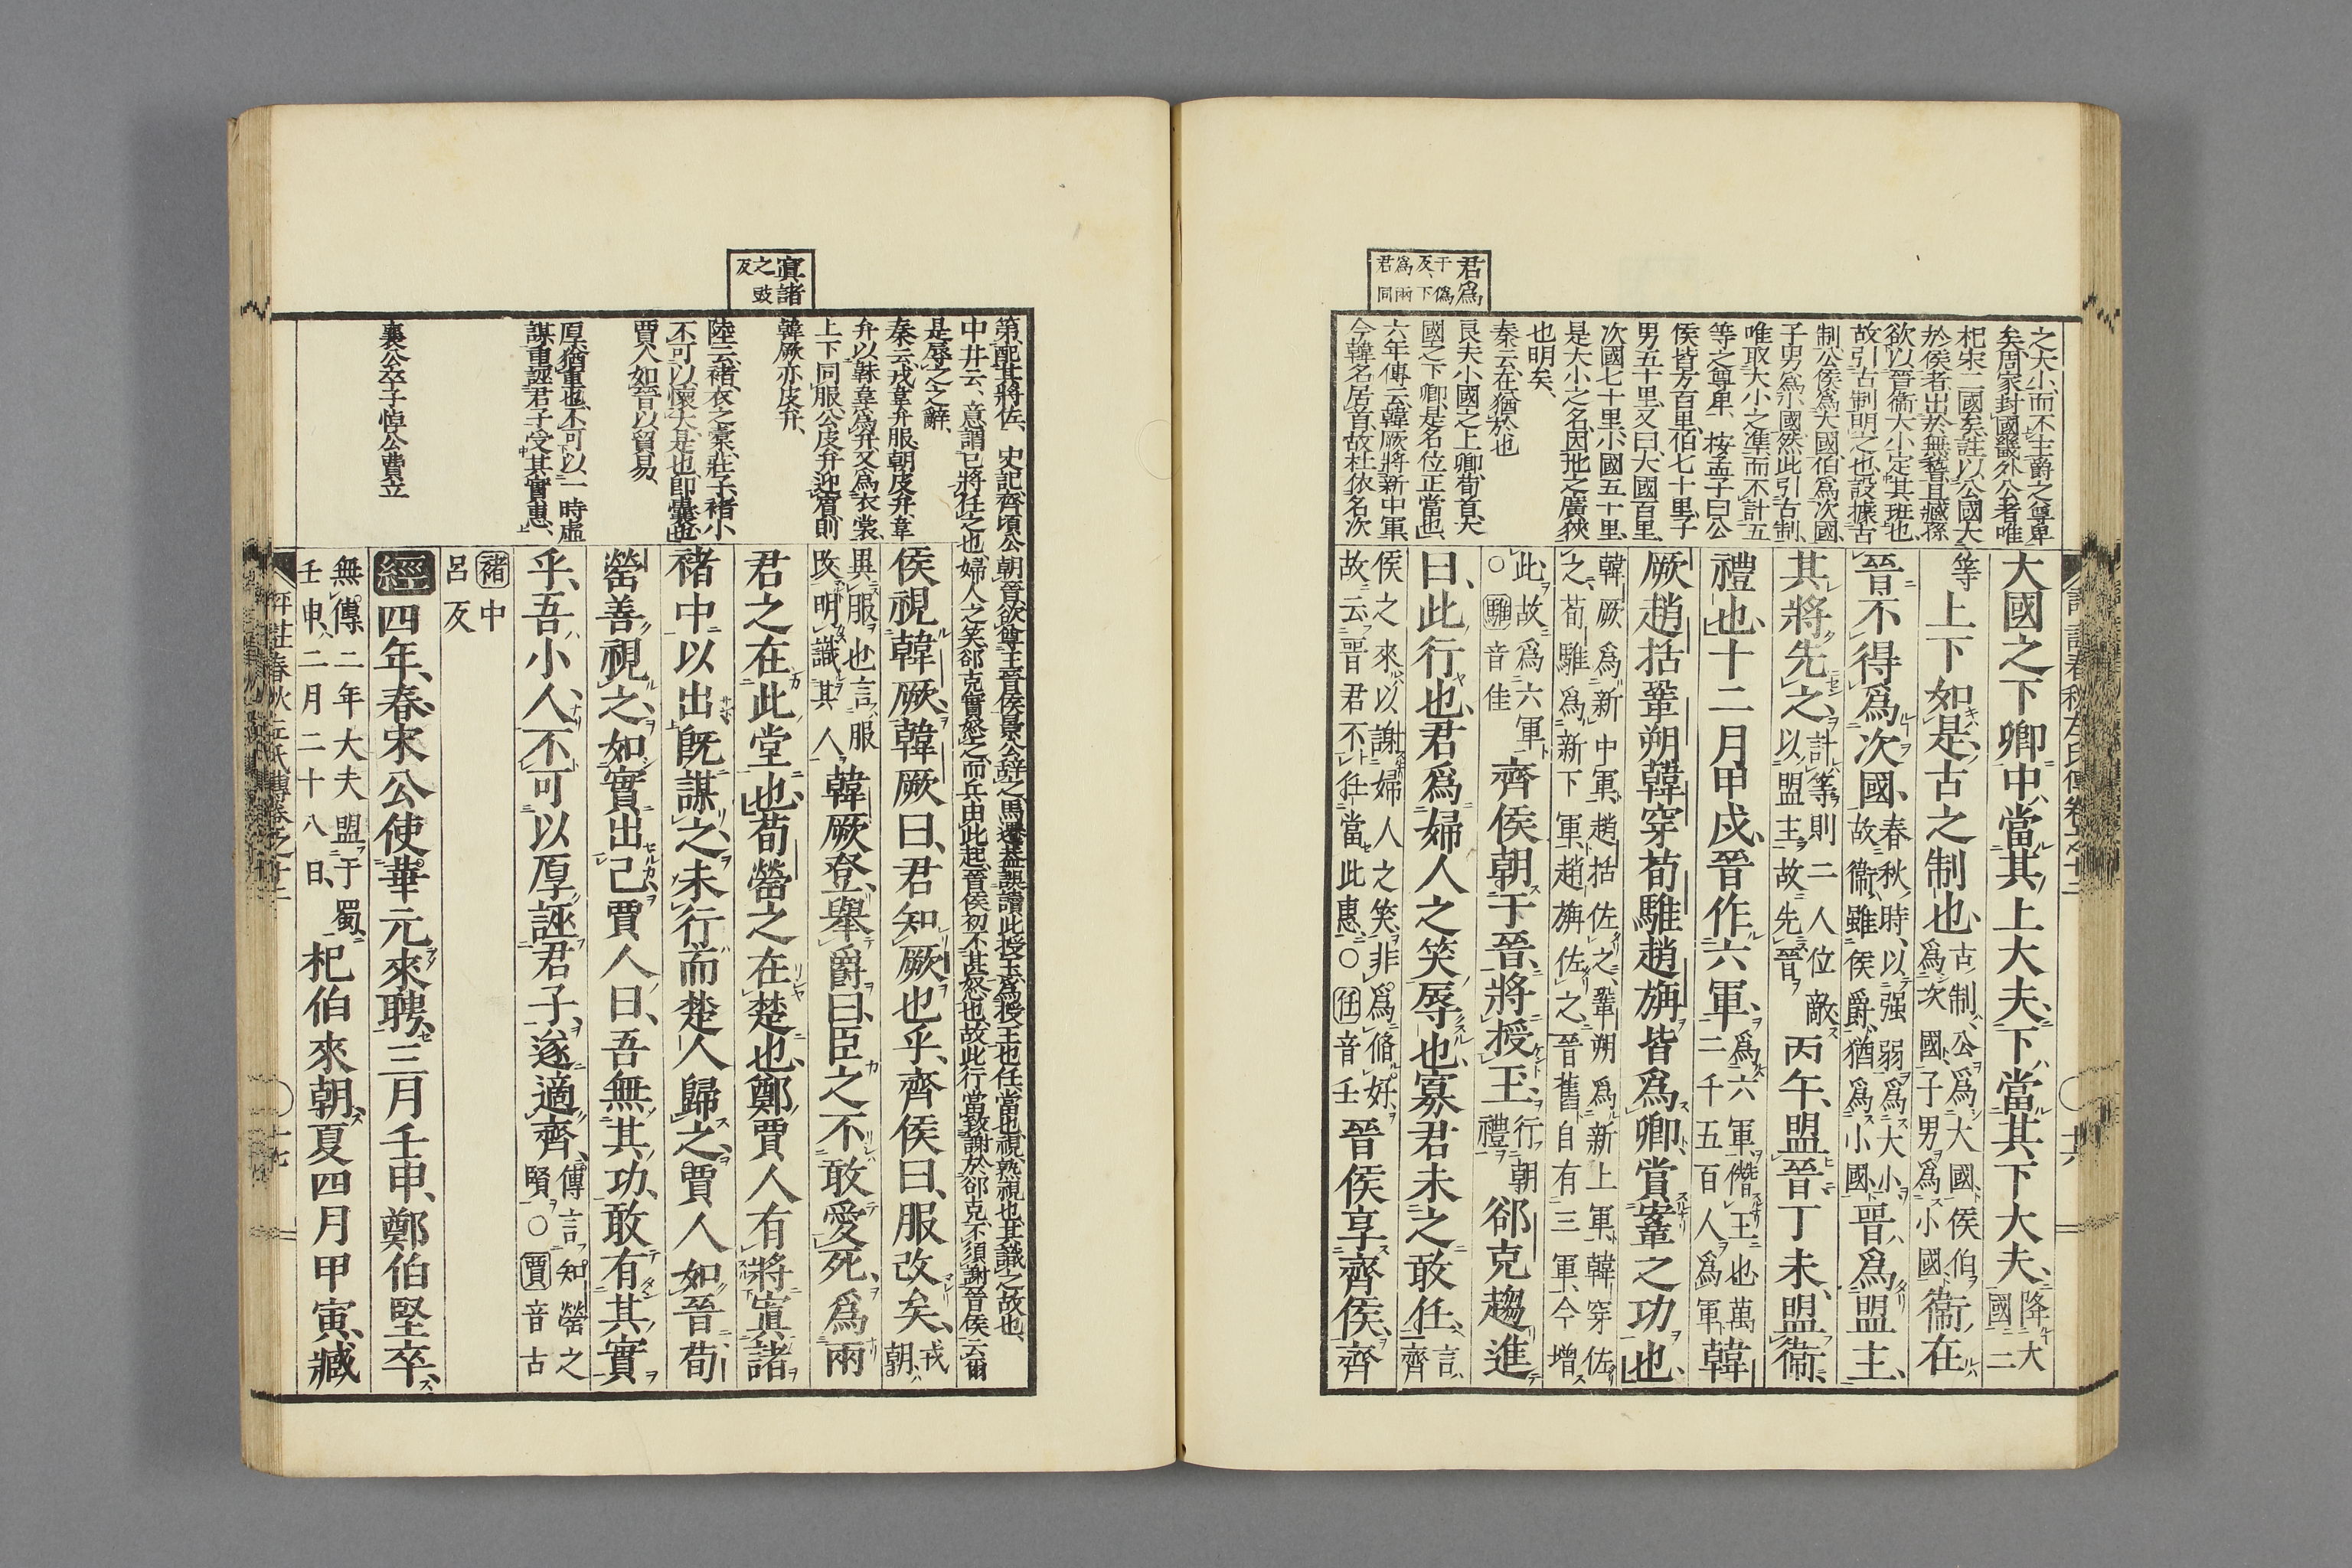 君爲
于僞
反、下
爲兩
君同
之大小、而不主爵之尊卑
矣、周家封國畿外公者唯
杞宋二國矣、註以公國大
於侯者出於無稽、且臧孫
欲以晉衞大小定其班也、
故引古制明之也、設據古
制、公侯爲大國、伯爲次國、
子男爲小國、然此引古制、
唯取大小之準、而不計五
等之尊卑、按孟子曰、公
侯皆方百里、伯七十里、子
男五十里、又曰、大國百里、
次國七十里、小國五十里、
是大小之名、因地之廣狹
也明矣、
秦云、在猶於也
良夫小國之上卿、荀首大
國之下卿、是名位正當也、
六年傳云、韓厥將新中軍、
今韓名居首、故杜依名次
大國之下卿、中當其上大夫、下當其下大夫、降大國二
等上下如是、古之制也、古制、公爲大國、侯伯爲次國、子男爲小國、衞在
晉不得爲次國、春秋時、以强弱爲大小、故衞雖侯爵、猶爲小國、晉爲盟主、
其將先之、計等則二人位敵、以盟主故先晉、丙午、盟晉丁未、盟衞、
禮也、十二月甲戌、晉作六軍、爲六軍、僭王也、萬二千五百人爲軍、韓
厥趙括鞏朔韓穿荀騅趙旃皆爲卿、賞鞌之功也、
韓厥爲新中軍、趙括佐之、鞏朔爲新上軍、韓穿佐
之、荀騅爲新下軍、趙旃佐之、晉舊自有三軍、今增
此、故爲六軍、○騅音佳 齊侯朝于晉、將授玉、行朝禮、郤克趨進
曰、此行也、君爲婦人之笑辱也、寡君未之敢任、言齊
侯之來、以謝婦人之笑、非爲脩好、
故云晉君不任當此惠、○任音壬 晉侯享齊侯、齊
寘諸
之豉
反
第配其將佐、 史記齊頃公朝晉、欲尊王晉侯景公、辭之、馬遷蓋誤讀此授玉爲授王也、任當也、視熟視也、其識之故也、
中井云、意謂已將任之也、婦人之笑、郤克實怒之、而兵由此起、晉侯初不甚怒也、故此行當致謝於郤克、不須謝晉侯云爾
是辱之之辭、
秦云、戎韋弁服、朝皮弁、韋
弁以韎韋爲弁、又爲衣裳、
上下同服、公皮弁迎賓、則
韓厥亦皮弁、
陸云、褚衣之橐、莊子、褚小
不可以懷大是也、即囊也
賈人如晉以貿易、
厚猶重也、不可以一時虛
謀重誣君子受其實惠、
襄公卒子悼公費立
侯視韓厥、韓厥曰、君知厥也乎、齊侯曰、服改矣、戎朝
異服也、言服改、明識其人、韓厥登、舉爵曰、臣之不敢愛死、爲兩
君之在此堂也、荀罃之在楚也、鄭賈人有將寘諸
褚中以出、旣謀之、未行、而楚人歸之、賈人如晉、荀
罃善視之、如實出己、賈人曰、吾無其功、敢有其實
乎、吾小人、不可以厚誣君子、遂適齊、傳言知罃之賢、○賈音古
褚中
呂反
經四年、春、宋公使華元來聘、三月壬申、鄭伯堅卒、
無傳、二年大夫盟于蜀、壬申、二月二十八日、杞伯來朝、夏四月甲寅、臧